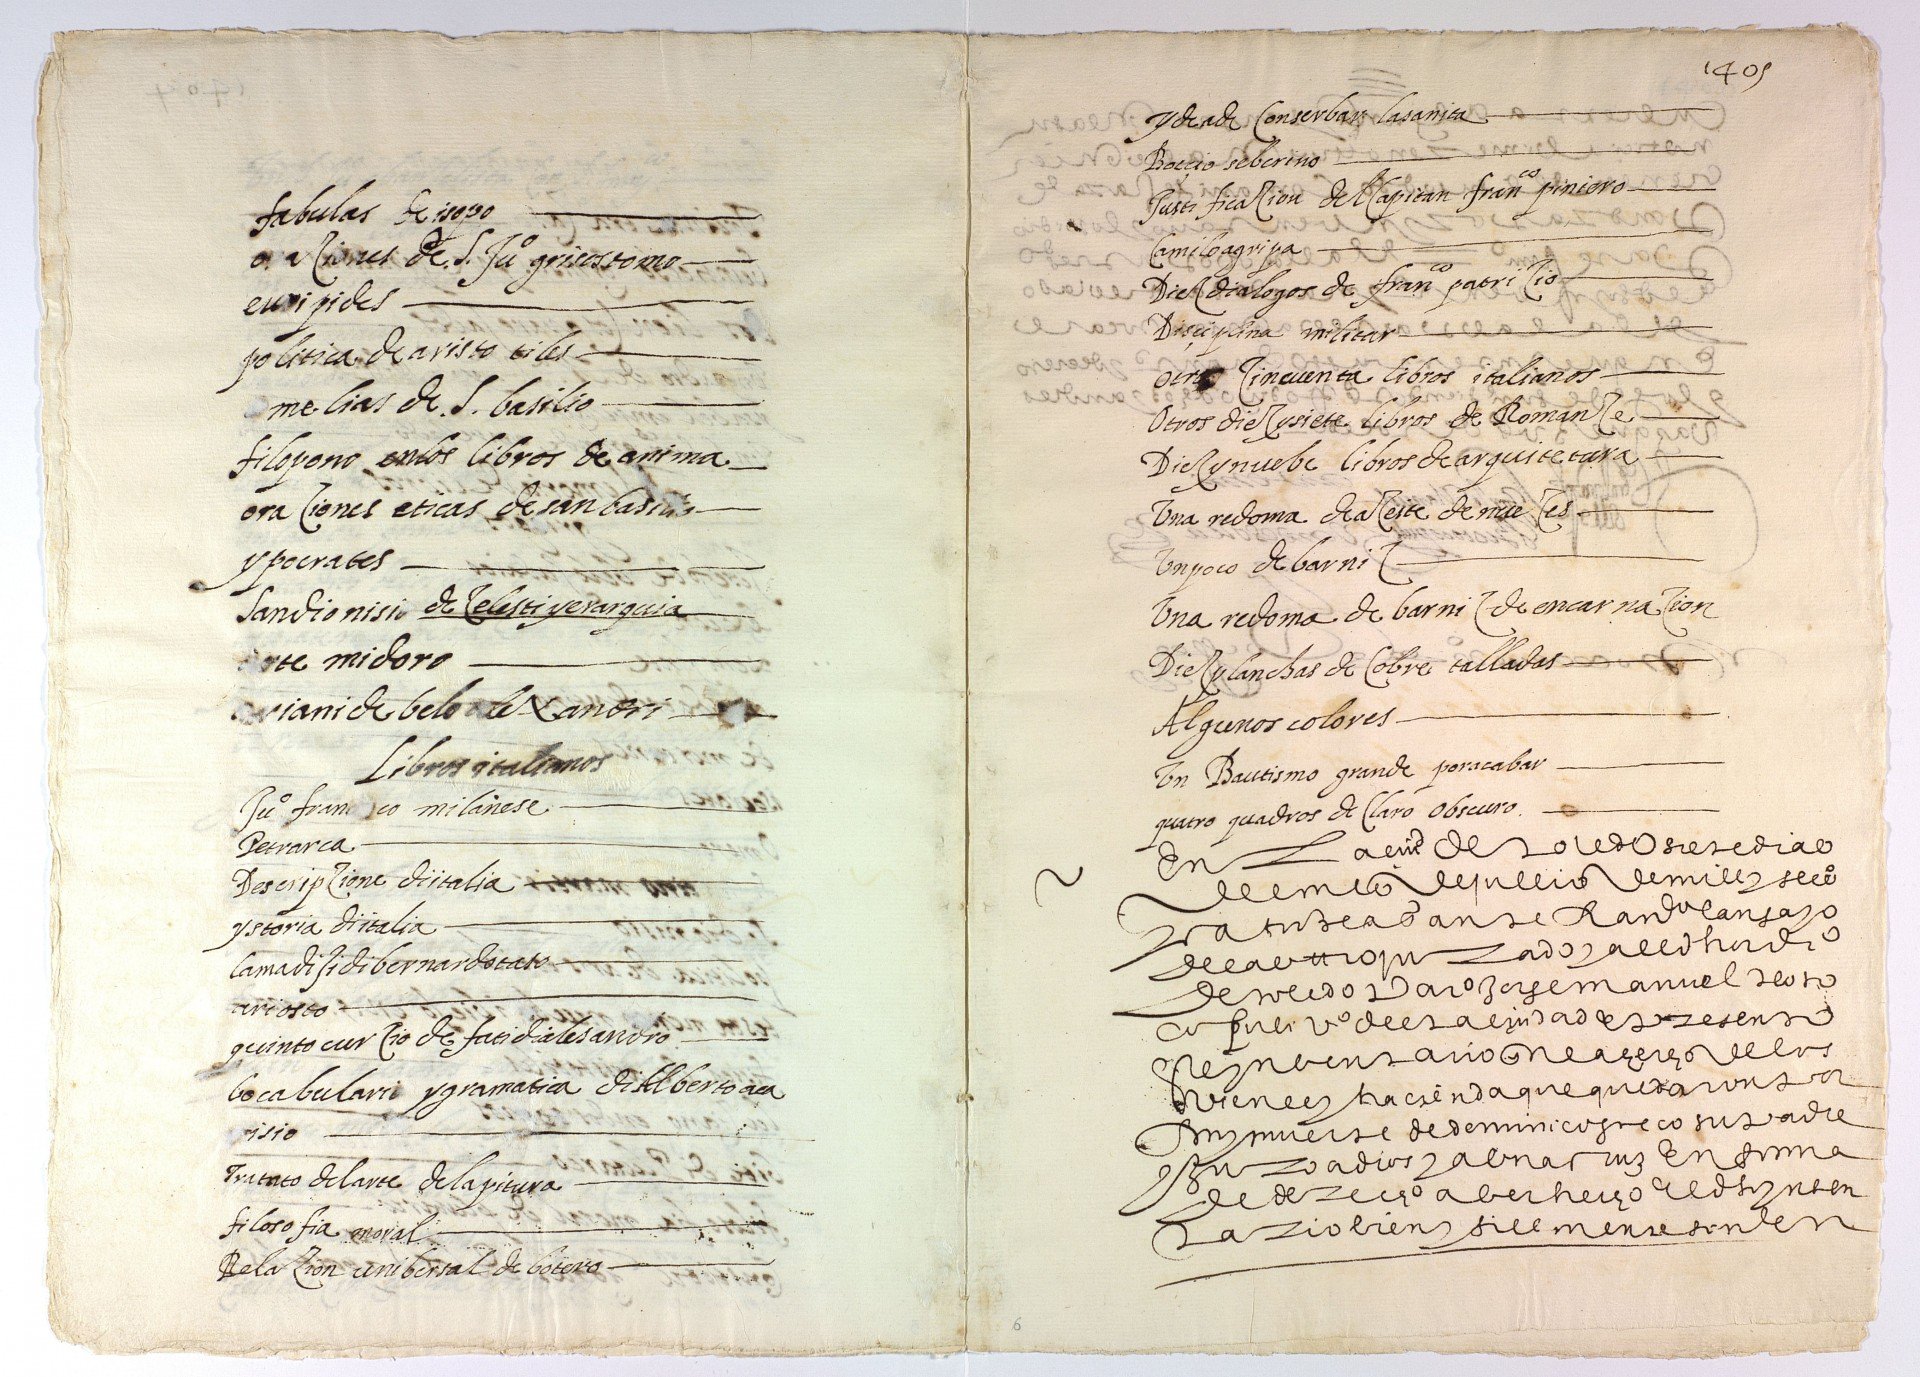 fabulas de isopo
oraçiones de S. Juº grisostomo
euripides
politica de aristotiles
omelias de S. basilio
filopono en los libros de anima
oraçiones eticas de san basilio
ypocrates
San dionisio de çelesti yerarquia
Arte midoro
ariani de belo alexandri
Libros italianos
Juº franco milanese
Petrarca
Descripçione di italia
ystoria di italia
lamadiji di bernardo tato
ariosto
quinto curçio de fati di alesandro
bocabulario y gramatica di Alberto aca
risio
Tratato del arte de la pitura
filosofia moral
Relaçion unibersal de botero
1405
ydea de Conserbar la sanita
Boeçio seberino
Justificaçion del Capitan franco piniero
Camilo agripa
Diez dialogos de franco patriçio
Disciplina militar
otros çincuenta libros italianos
Otros diez y siete libros de Romançe
Diez y nuebe libros de arquitetura
Una redoma de açeite de nueçes
Un poco de barniz
Una redoma de barniz de encarnaçion
Diez planchas de Cobre talladas
Algunos colores
Un Bautismo grande por acabar
quatro quadros de Claro obscuro
En la ciud de toledo siete dias
del mes de jullio de mill y seisos
y catorze ados ante
de toledo Jorge manuel
de esta ciudad
ynventario de los
bienes y hacienda que quedaron por
fin y muerte de dominico greco su padre
y Juro a dios y a una cruz En forma
de derecho aber hecho el dho ynben
tario bien y fielmente sin
6